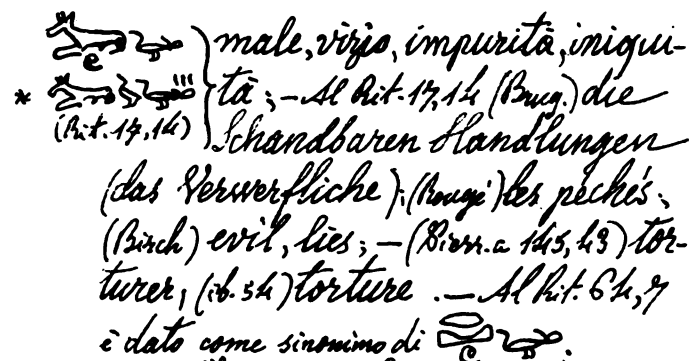 male, vizio, impurità, iniqui-
* tà; — Al Rit. 17,14 (Brug.) die
(Rit. 17,14) Schandbaren Handlungen
(das Verwerfliche); (Rougé) les péchés;
(Birch) evil, lies; — (Pierr. a 145, 43) tor-
turer, (ib. 54) torture. — Al Rit. 64, 7
è dato come sinonimo di